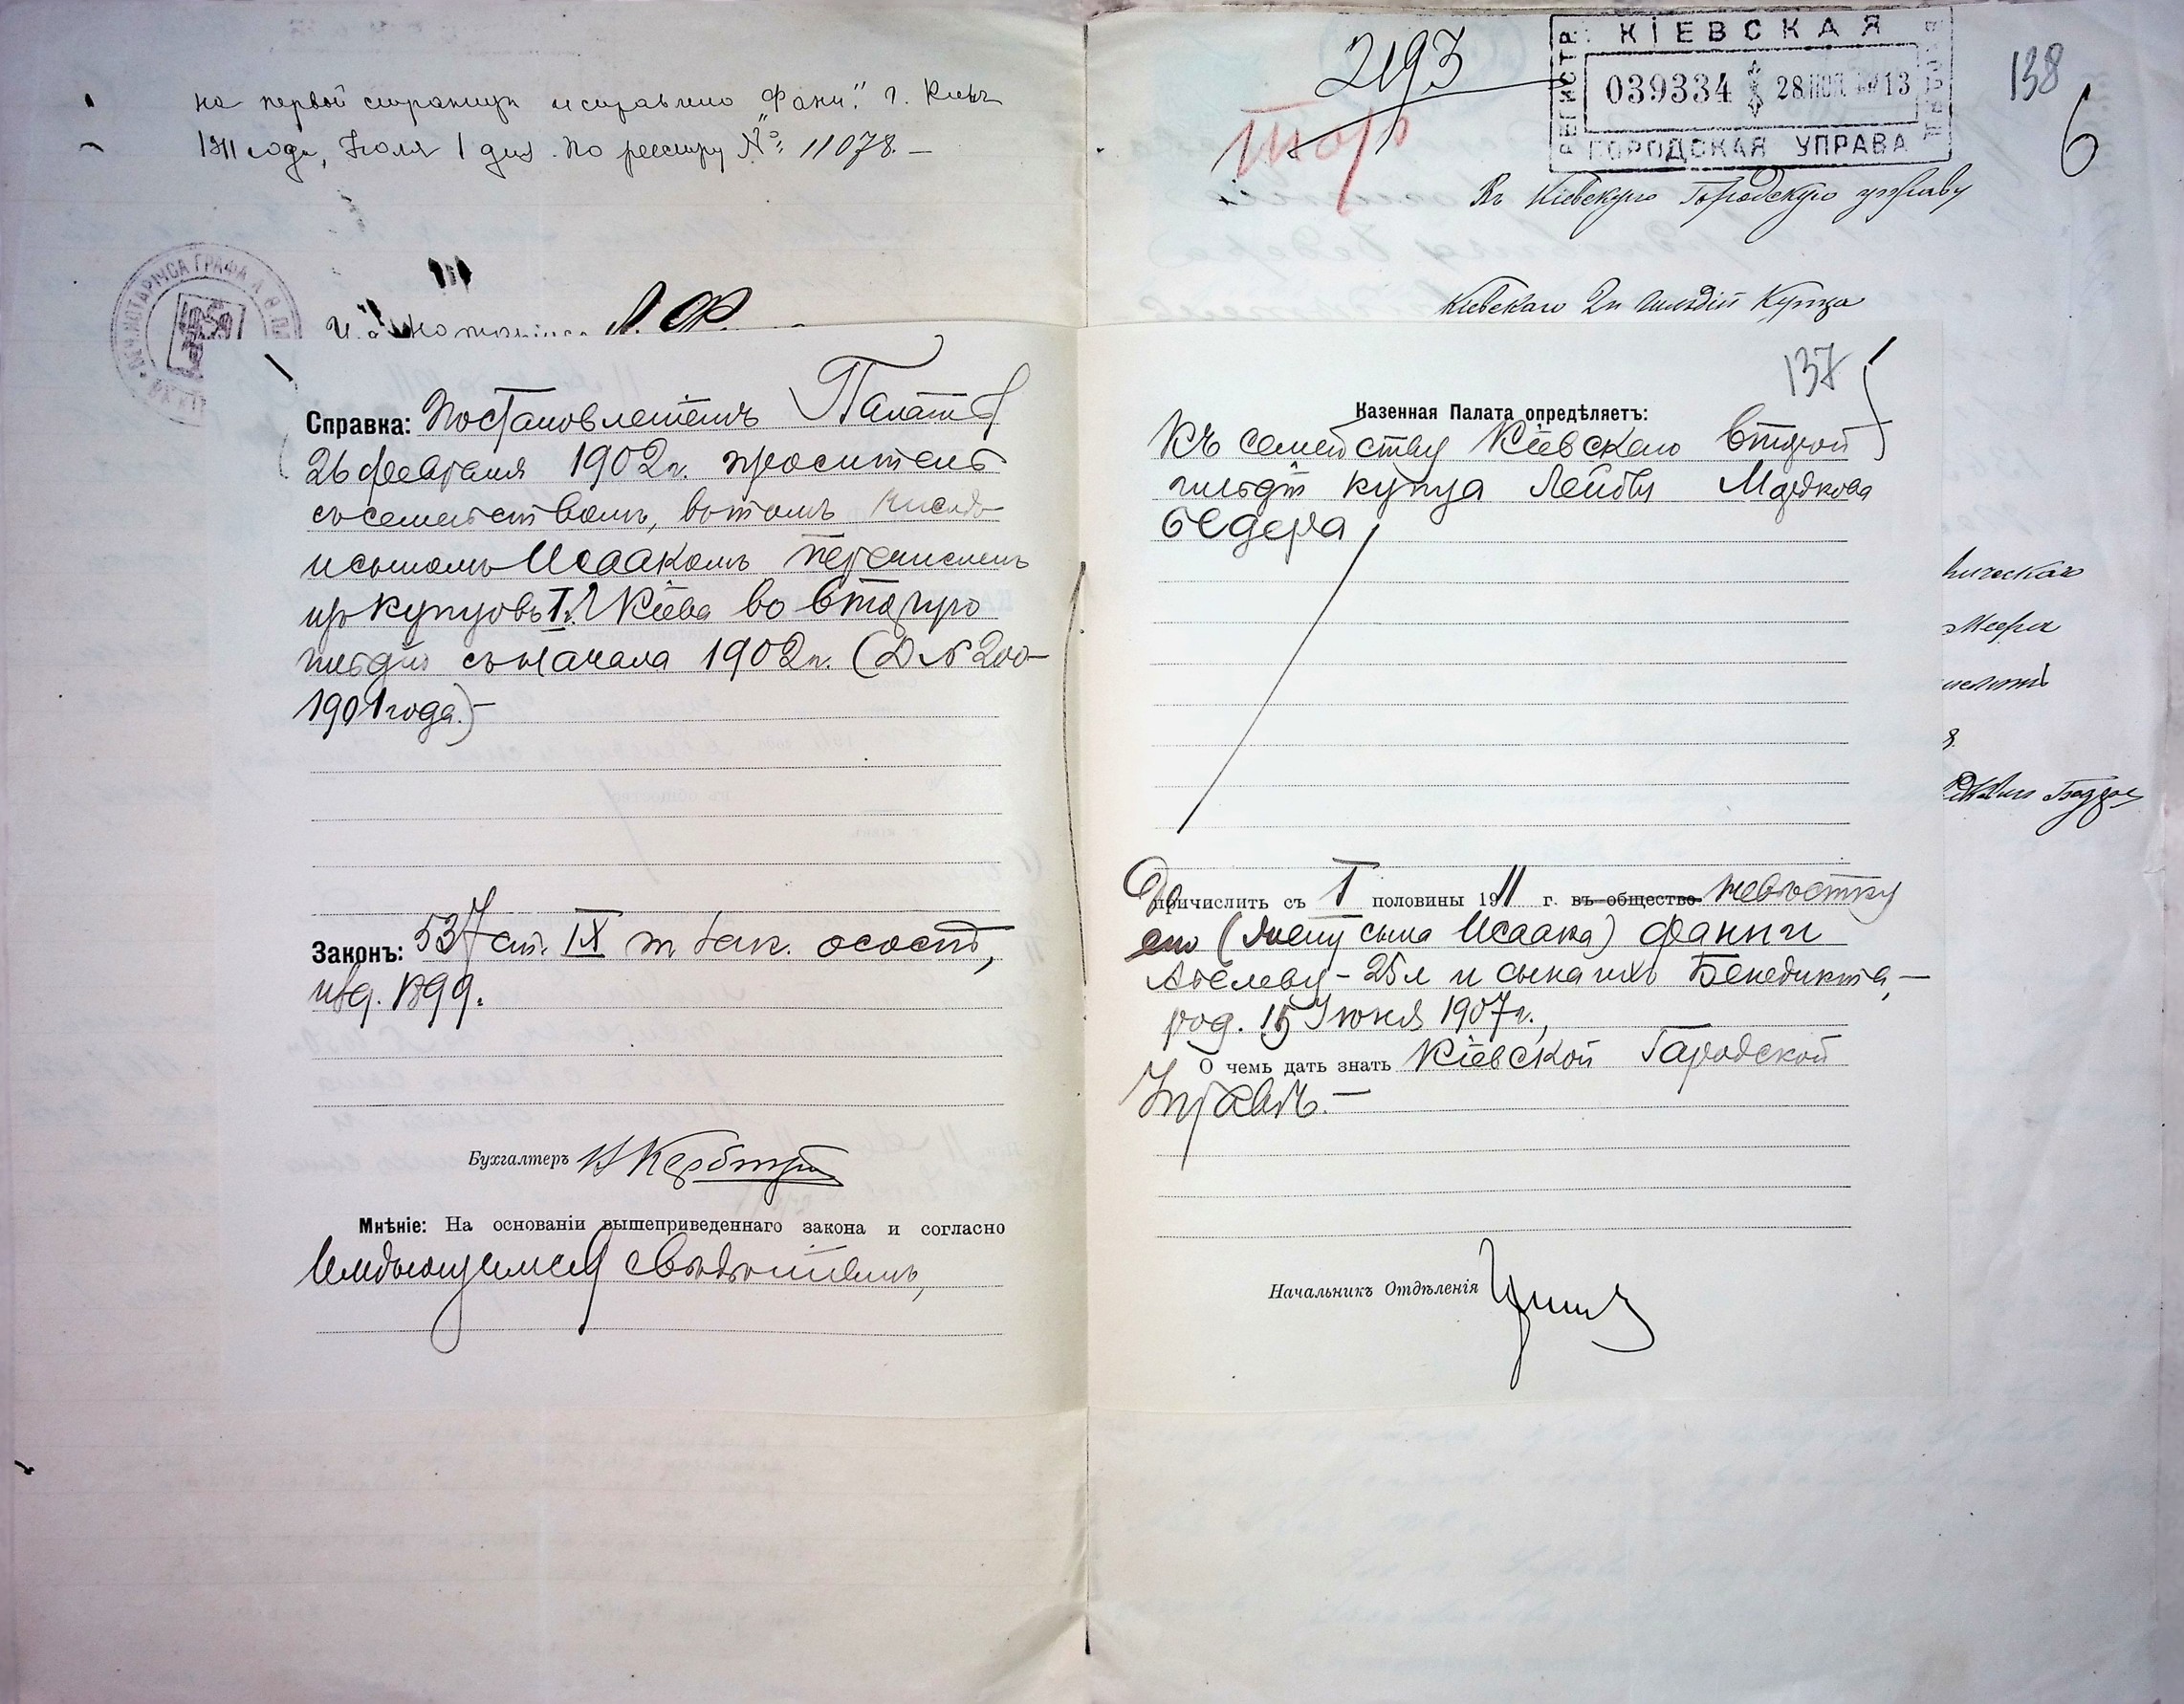 на первой страницѣ исправлено „Фани“. г. Кіевъ
1911 года, Іюля 1 дня. По реестру №: 11078.—
НОТАРІУСА ГРАФА
И. д. Нотаріуса
Справка: Постановленіемъ Палаты
26 февраля 1902 г. проситель
съ семействомъ, въ томъ числѣ
и сыномъ Исаакомъ перечисленъ
изъ купцовъ I г. Кіева во вторую
гильдію съ начала 1902 г. (Д № 200-
1901 года).—
Законъ: 537 ст. IX т зак. о сост,
изд. 1899.
Бухгалтеръ
Мнѣніе: На основаніи вышеприведеннаго закона и согласно
имѣющемуся свѣдѣнію,
2193
КІЕВСКАЯ
РЕГИСТР.
039334 28 13
ГОРОДСКАЯ УПРАВА
138
6
Въ Кіевскую Городскую управу
Кіевскаго 2й гильдіи Купца
137
Казенная Палата опредѣляетъ:
Къ семейству Кіевскаго второй
гильдіи купца Лейбы Мордкова
Бедера
Причислить съ I половины 1911 г. въ общество невѣстку
его (жену сына Исаака) Фанни
Абелеву - 25 л и сына ихъ Бенедикта,—
род. 15 Іюня 1907 г.,
О чемъ дать знать Кіевской Городской
Управѣ.—
Начальникъ Отдѣленія